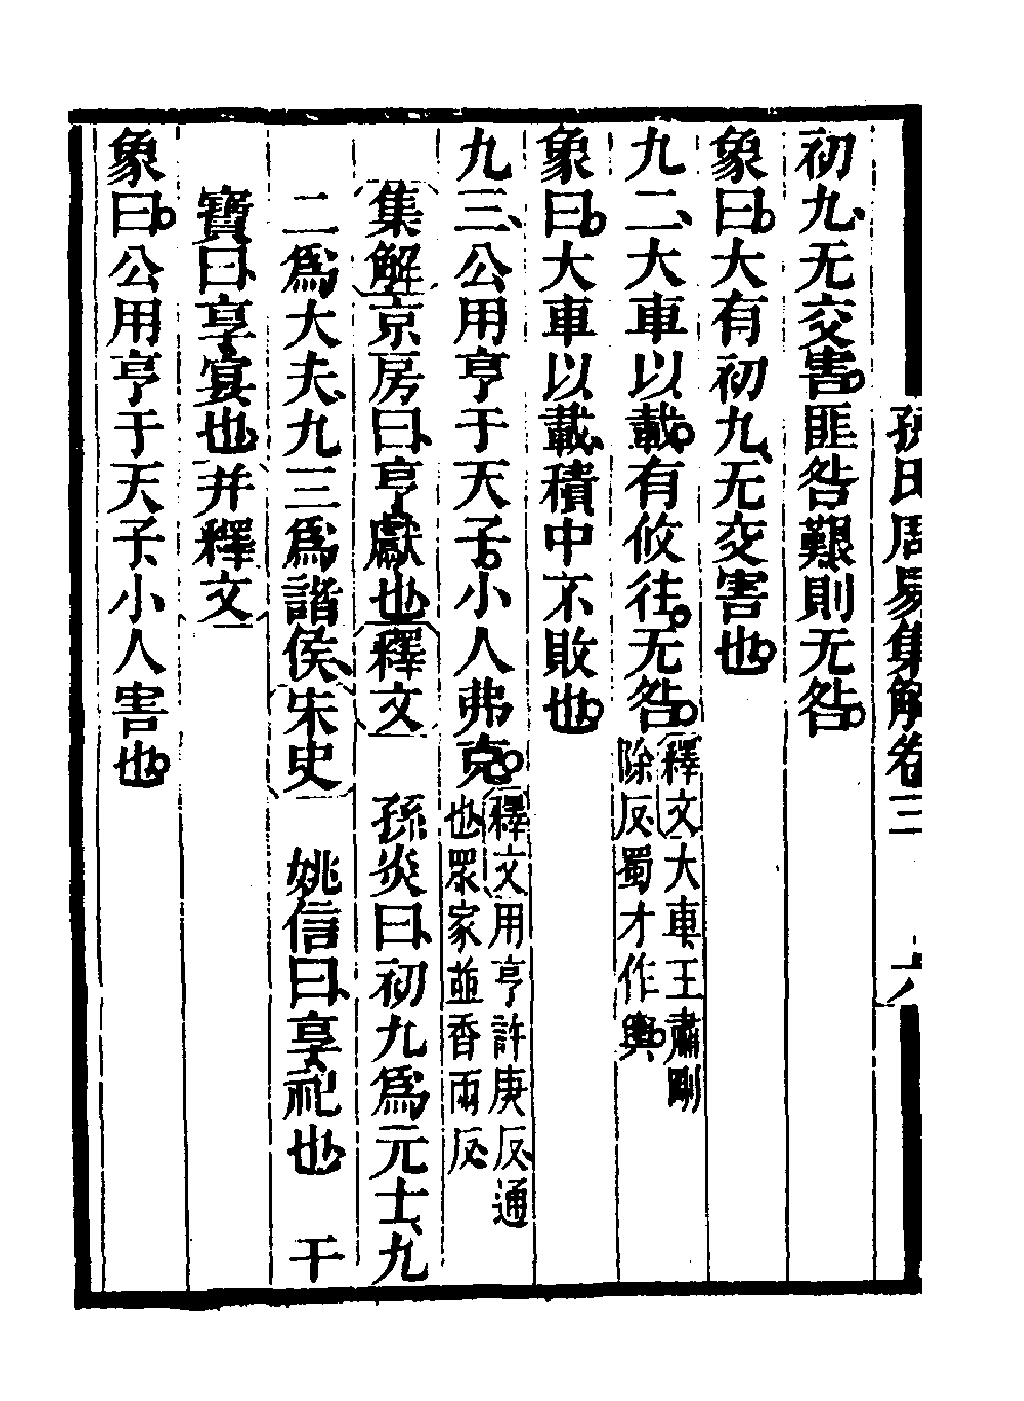 孫氏周易集解卷三 六
初九、无交害。匪咎艱則无咎。
象曰。大有初九、无交害也。
九二、大車以載。有攸往。无咎。釋文大車王肅剛除反、蜀才作輿。
象曰。大車以載、積中不敗也。
九三、公用亨于天子。小人弗克。釋文用亨許庚反、通也眾家並香兩反、
集解京房曰、亨獻也、釋文 孫炎曰、初九爲元士、九
二爲大夫、九三爲諸侯、宋史 姚信曰、享祀也 干
寶曰、享宴也、并釋文
象曰。公用亨于天子、小人害也。